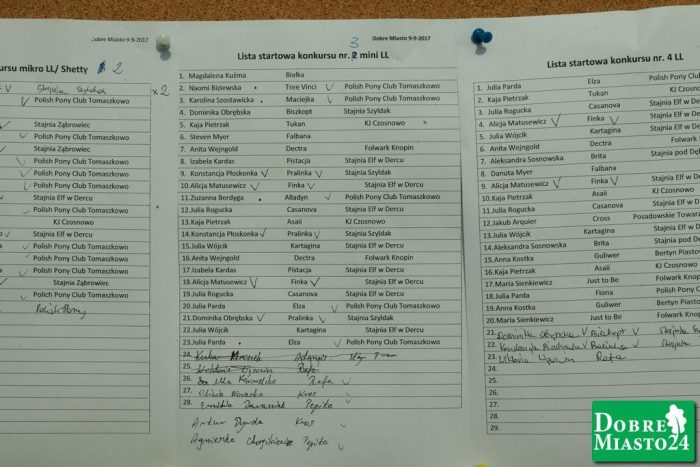 Dobre Miasto 9-9-2017
kursu mikro LL/ Shetty 2
x2
Polish Pony Club Tomaszkowo
Stajnia Ząbrowiec
Polish Pony Club Tomaszkowo
Stajnia Ząbrowiec
Polish Pony Club Tomaszkowo
Polish Pony Club Tomaszkowo
Polish Pony Club Tomaszkowo
Stajnia Elf w Dercu
Polish Pony Club Tomaszkowo
KJ Czosnowo
Polish Pony Club Tomaszkowo
Stajnia Elf w Dercu
Polish Pony Club Tomaszkowo
Stajnia Ząbrowiec
Polich Pony Club Tomaszkowo
Dobre Miasto 9-9-2017
3
Lista startowa konkursu nr. 2 mini LL
1. Magdalena Kuźma Białka
2. Naomi Biziewska Tree Vinci Polish Pony Club Tomaszkowo
3. Karolina Szostawicka Maciejka Polish Pony Club Tomaszkowo
4. Dominika Obrębska Biszkopt Stajnia Szyldak
5. Kaja Pietrzak Tukan KJ Czosnowo
6. Steven Myer Falbana
7. Anita Wejngold Dectra Folwark Knopin
8. Izabela Kardas Pistacja Stajnia Elf w Dercu
9. Konstancja Płoskonka Pralinka Stajnia Szyldak
10. Alicja Matusewicz Finka Stajnia Elf w Dercu
11. Zuzanna Berdyga Alladyn Polish Pony Club Tomaszkowo
12. Julia Rogucka Casanova Stajnia Elf w Dercu
13. Kaja Pietrzak Asaii KJ Czosnowo
14. Konstancja Płoskonka Pralinka Stajnia Szyldak
15. Julia Wójcik Kartagina Stajnia Elf w Dercu
16. Anita Wejngold Dectra Folwark Knopin
17. Izabela Kardas Pistacja Stajnia Elf w Dercu
18. Alicja Matusewicz Finka Stajnia Elf w Dercu
19. Julia Rogucka Casanova Stajnia Elf w Dercu
20. Julia Parda Elza Polish Pony Club Tomaszkowo
21. Dominika Obrębska Pralinka Stajnia Szyldak
22. Julia Wójcik Kartagina Stajnia Elf w Dercu
23. Julia Parda Elza Polish Pony Club Tomaszkowo
24.
25.
26. Rafa
27. Kros
28. Pepita
Artur Kros
Agnieszka Pepita
Lista startowa konkursu nr. 4 LL
1. Julia Parda Elza Polish Pony Club
2. Kaja Pietrzak Tukan KJ Czosnowo
3. Julia Rogucka Casanova Stajnia Elf w D
4. Alicja Matusewicz Finka Stajnia Elf w
5. Julia Wójcik Kartagina Stajnia Elf w
6. Anita Wejngold Dectra Folwark Knopin
7. Aleksandra Sosnowska Brita Stajnia pod Dę
8. Danuta Myer Falbana
9. Alicja Matusewicz Finka Stajnia Elf w Dercu
10. Kaja Pietrzak Asaii KJ Czosnowo
11. Julia Rogucka Casanova Stajnia Elf w Dercu
12. Jakub Arquier Cross Posadowskie Towar
13. Julia Wójcik Kartagina Stajnia Elf w Dercu
14. Aleksandra Sosnowska Brita Stajnia pod D
15. Anna Kostka Guliwer Bertyn Piastowo
16. Kaja Pietrzak Asaii KJ Czosnowo
17. Maria Sienkiewicz Just to Be Folwark Knopin
18. Julia Parda Fiona Polish Pony C
19. Anna Kostka Guliwer Bertyn Piast
20. Maria Sienkiewicz Just to Be Folwark
21. Dominika Obrębska Biszkopt
22. Konstancja Płoskonka Pralinka Stajnia
23. Rafa
24.
25.
26.
27.
28.
29.
DOBRE
MIASTO24